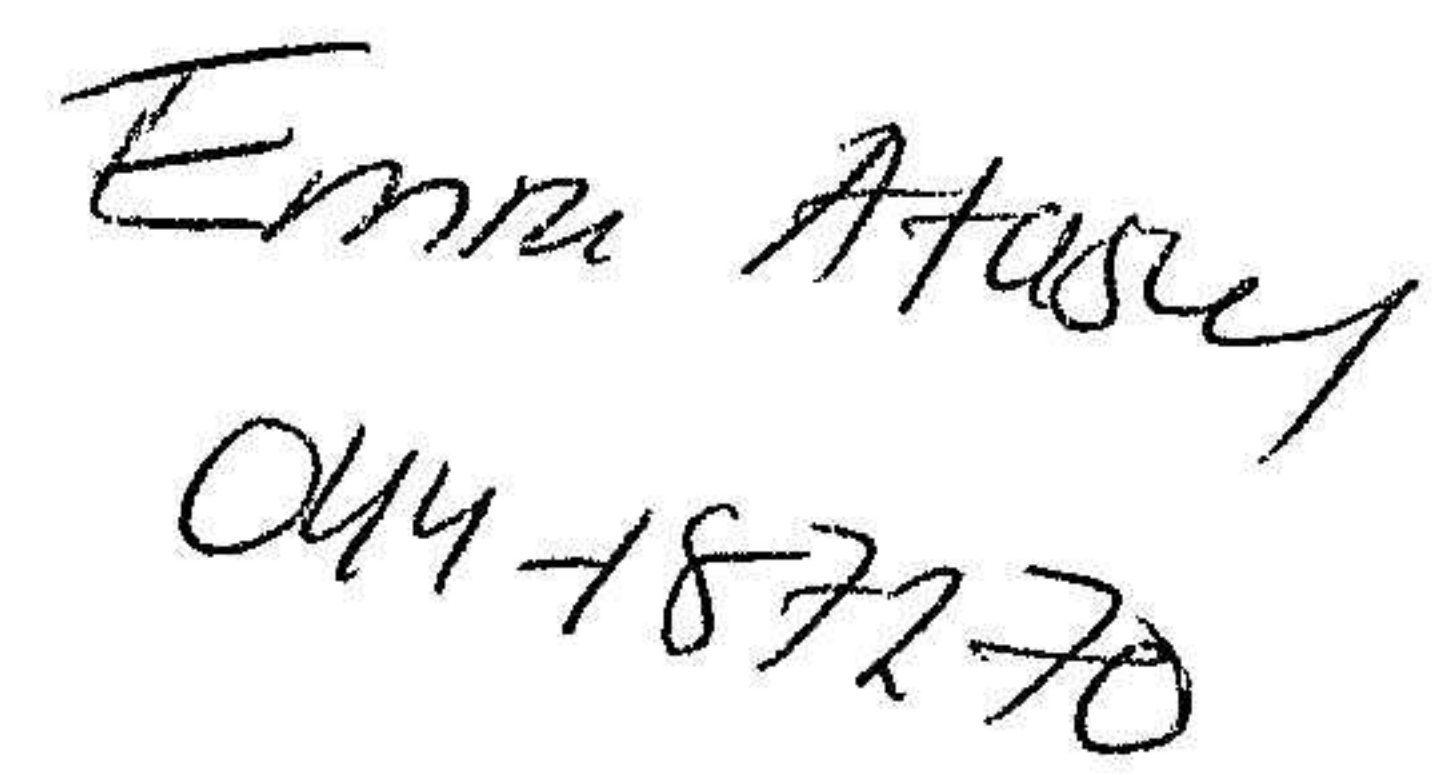 Emre Atasoy
044-187270